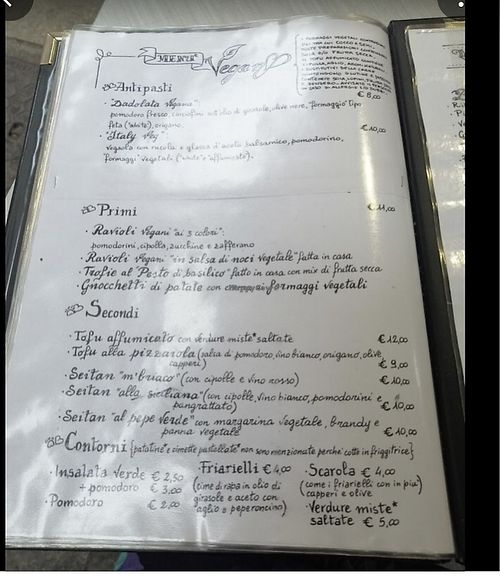 MENU Vegano
€ 8,00
Antipasti
· "Dadolata Vegana":
pomodoro fresco, carciofini sott'olio di girasole, olive nere, "formaggio" tipo
feta ("white"), origano
€ 10,00
· "Italy Veg"
vegsola con rucola e glassa d'aceto balsamico, pomodorino,
"formaggi" vegetali ("white" e "affumicato").
Primi € 11,00
· Ravioli Vegani "ai 3 colori":
pomodorini, cipolla, zucchine e zafferano
· Ravioli Vegani "in salsa di noci vegetale" fatta in casa
· Trofie al "Pesto di basilico" fatto in casa con mix di frutta secca
· Gnocchetti di patate con formaggi vegetali
Secondi
· Tofu affumicato con verdure miste* saltate € 12,00
· Tofu alla pizzaiola (salsa di pomodoro, vino bianco, origano, olive,
capperi) € 9,00
· Seitan "m'briaco" (con cipolle e vino rosso) € 10,00
· Seitan "alla siciliana" (con cipolle, vino bianco, pomodorini e
pangrattato) € 10,00
· Seitan "al pepe verde" con margarina vegetale, brandy e
panna vegetale € 10,00
Contorni {patatine e crocchette pastellate* non sono menzionate perchè cotte in friggitrice}
· Insalata verde € 2,50
+ pomodoro € 3,00
· Pomodoro € 2,00
· Friarielli € 4,00
(cime di rapa in olio di
girasole e aceto con
aglio e peperoncino)
· Scarola € 4,00
(come i friarielli con in più
capperi e olive)
· Verdure miste*
saltate € 5,00